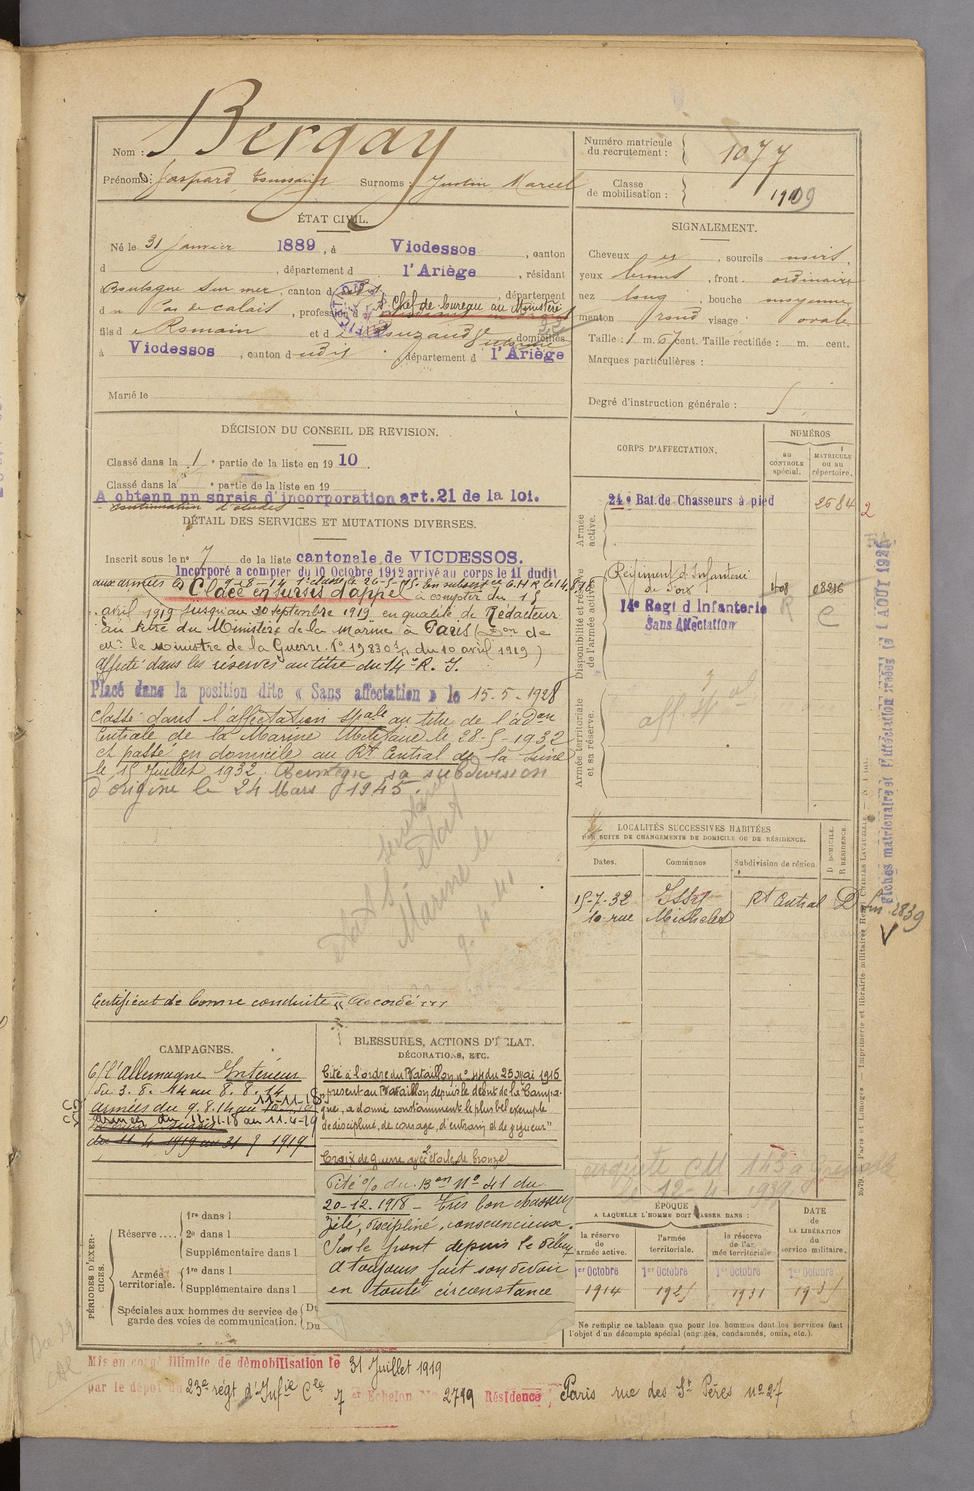 Nom : Bergay
Prénoms : Gaspard, Toussaint Surnoms : Justin Marcel
Numéro matricule du recrutement : 1077
Classe de mobilisation : 1909
ÉTAT CIVIL.
Né le 31 janvier 1889, à Vicdessos, canton
d , département d l'Ariège, résidant
Boulogne sur mer, canton d , département
d u Pas de Calais, profession d S. Chef de bureau au Ministère
fils d e Romain et d e domiciliés
à Vicdessos, canton d udit département d l'Ariège
Marié le
SIGNALEMENT.
Cheveux , sourcils noirs,
yeux bruns, front ordinaire
nez long, bouche moyenne
menton rond visage ovale
Taille : 1 m. 67 cent. Taille rectifiée : m. cent.
Marques particulières :
Degré d'instruction générale :
DÉCISION DU CONSEIL DE REVISION.
Classé dans la 1e partie de la liste en 1910.
Classé dans la e partie de la liste en 19
A obtenu un sursis d'incorporation art. 21 de la loi.
continuation d'études
DÉTAIL DES SERVICES ET MUTATIONS DIVERSES.
Inscrit sous le n° 7 de la liste cantonale de VICDESSOS.
Incorporé a compter du 10 Octobre 1912 arrivé au corps le 11 dudit
aux armées
Placé en sursis d'appel à compter du 15
avril 1919 jusqu'au 30 septembre 1919 en qualité de Rédacteur
au titre du Ministère de la Marine à Paris (Don de
Mr le Ministre de la Guerre du 10 avril 1919)
Affecté dans les réserves au titre du 14e R. I.
Placé dans la position dite « Sans affectation » le 15.5.1928
Classé dans l'affectation spale au titre de l'adon
Centrale de la Marine Militaire le 28-5-1932
et passé en domicile au Rt Central de la Seine
le 15 Juillet 1932. Réintègre sa subdivision
d'origine le 24 Mars 1945.
Certificat de bonne conduite " Accordé "
CORPS D'AFFECTATION.
NUMÉROS
au CONTROLE spécial.
MATRICULE ou au répertoire.
Armée active.
24e Bat. de Chasseurs à pied 2684
Disponibilité et réserve de l'armée active.
Régiment d'Infanterie
de Foix
14e Regt d'Infanterie
Sans Affectation
R C
Armée territoriale et sa réserve.
Fiches matriculaire et d'affectation créées le 1 AOUT 1926
LOCALITÉS SUCCESSIVES HABITÉES
PAR SUITE DE CHANGEMENTS DE DOMICILE OU DE RÉSIDENCE.
Dates. Communes Subdivision de région. D DOMICILE. R RÉSIDENCE.
15-7-32 Issy Rt Central D
10 rue Michelet
CAMPAGNES.
C/ l'Allemagne Intérieur
du 3.8.14 au 8.8.14
11-11-18
armées du 9.8.14 au
du 12-11-18 au 11-4-19
du 11 4 1919 au 31 7 1919
BLESSURES, ACTIONS D'ÉCLAT.
DÉCORATIONS, ETC.
Cité à l'ordre du Bataillon n° 44 du 25 Mai 1916
"présent au Bataillon depuis le début de la Campa-
gne, a donné constamment le plus bel exemple
de discipline, de courage, d'entrain et de vigueur"
Croix de guerre avec étoile de bronze
Cité % du Bon N° 41 du
20-12-1918 - Très bon chasseur
zélé, discipliné, consciencieux.
Sur le front depuis le début
a toujours fait son devoir
en toute circonstance
PÉRIODES D'EXERCICES.
Réserve....
1re dans l
2e dans l
Supplémentaire dans l
Armée territoriale.
1re dans l
Supplémentaire dans l
Spéciales aux hommes du service de garde des voies de communication.
Du
Du
ÉPOQUE
A LAQUELLE L'HOMME DOIT PASSER DANS :
la réserve de l'armée active.
l'armée territoriale.
la réserve de l'armée territoriale.
DATE DE LA LIBÉRATION du service militaire.
1er Octobre 1er Octobre 1er Octobre 1er Octobre
1914 1925 1931 1935
Ne remplir ce tableau que pour les hommes dont les services font l'objet d'un décompte spécial (engagés, condamnés, omis, etc.).
Mis en congé illimité de démobilisation le 31 Juillet 1919
par le dépôt du 23e régt d'Infie Cie 7 er Echelon No 2719 Résidence, Paris rue des Sts Pères n° 27